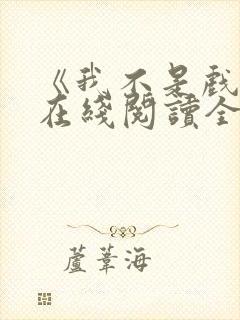 《我不是戲
在綫閱讀全
蘆葦海